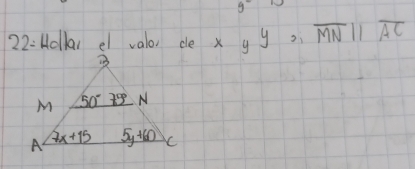 22=Hallar el valor de x y y si MN || AC
B
M 50° 75° N
A 7x+15 5y+60 C